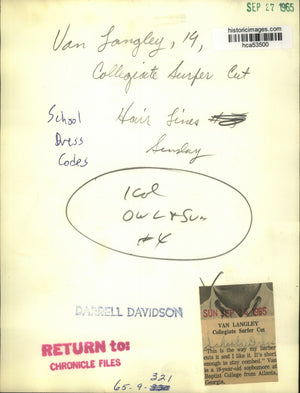 SEP 27 1965
historicimages.com
hca53500
Van Langley, 19,
Collegiate Surfer Cut
School
Dress
Codes
Hair Lines
Sunday
1 Col
OWL & Sun
#4
DARRELL DAVIDSON
RETURN to:
CHRONICLE FILES
321
65-9-
SUN SEP 1965
VAN LANGLEY
Collegiate Surfer Cut
"This is the way my barber
cuts it and I like it. It's short
enough to stay combed." Van
is a 19-year-old sophomore at
Baptist College from Atlanta,
Georgia.